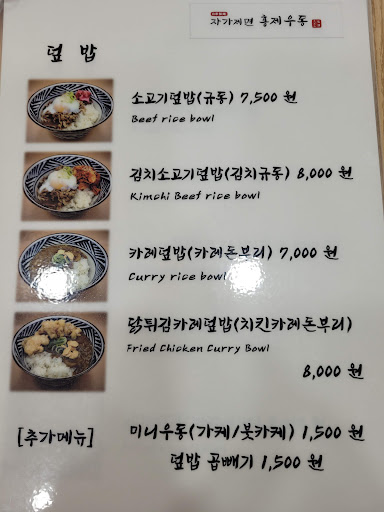 자가제면 홍제우동
덮 밥
소고기덮밥(규동) 7,500 원
Beef rice bowl
김치소고기덮밥(김치규동) 8,000 원
Kimchi Beef rice bowl
카레덮밥(카레돈부리) 7,000 원
Curry rice bowl
닭튀김카레덮밥(치킨카레돈부리)
Fried Chicken Curry Bowl
8,000 원
[추가메뉴] 미니우동(가케/붓카케) 1,500 원
덮밥 곱빼기 1,500 원